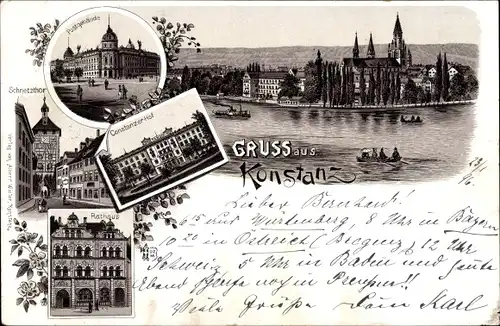 Postgebäude
Schnetzthor
Constanzer-Hof
GRUSS aus
Konstanz
Rathaus
Lieber Bernhard!
Uhr in Württemberg, 8 Uhr in Bayern
10 20 in Östreich (Bregenz), 12 Uhr
Schweiz 5 Uhr in Baden und heute
Abend noch in Preußen!!
Viele Grüße Dein Karl